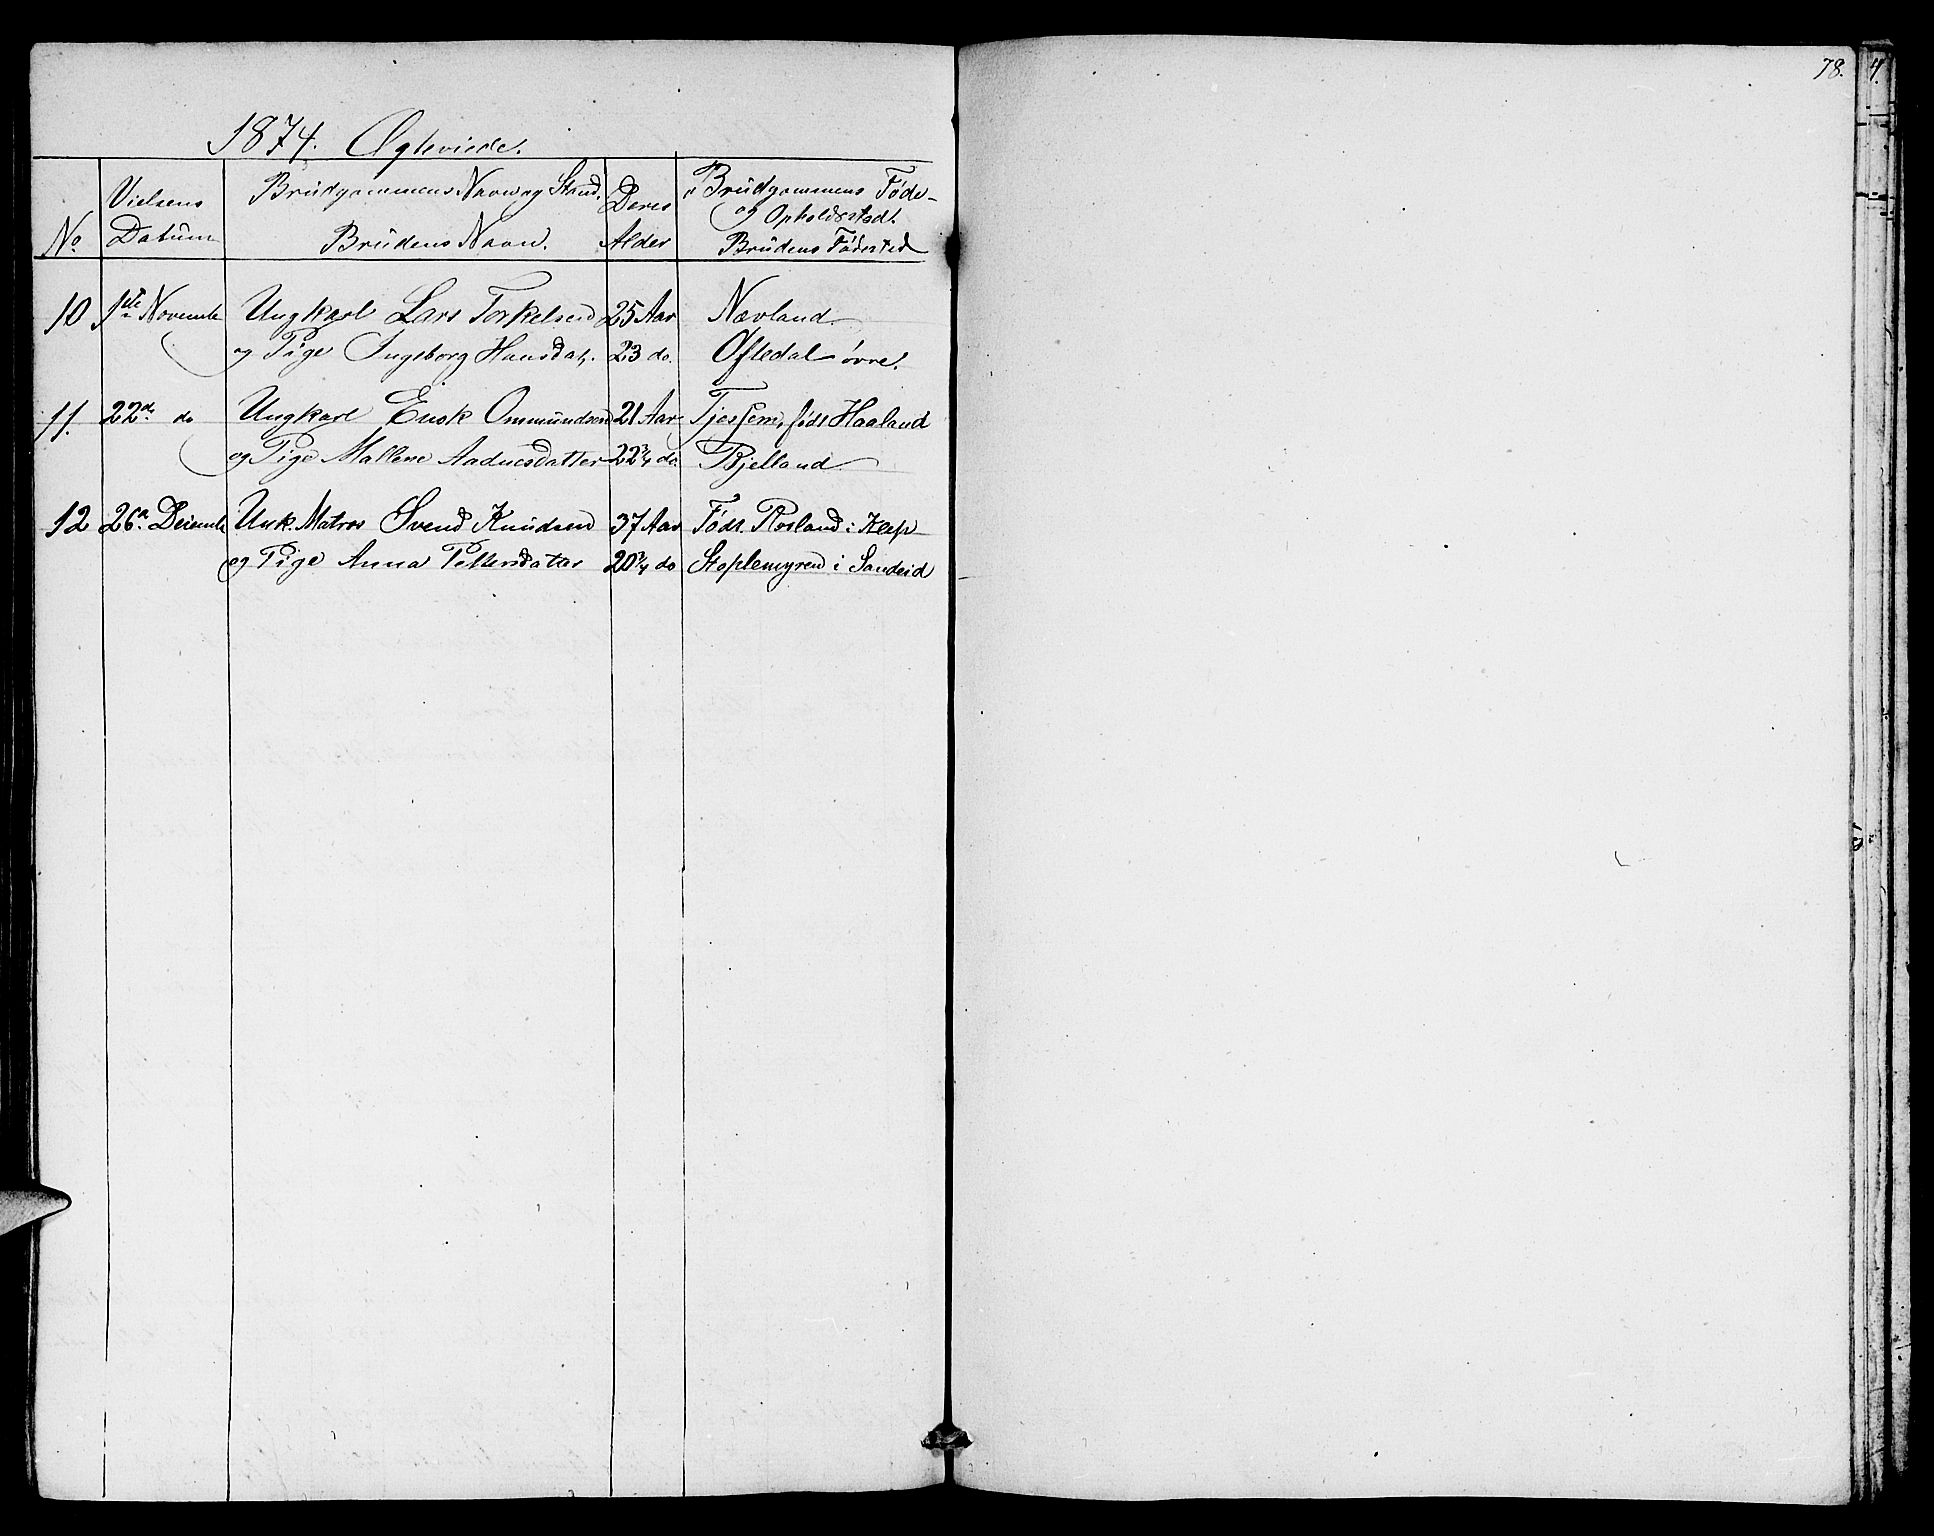 78.
1874. Ægteviede.
No. | Vielsens Datum | Brudgommens Navn og Stand. Brudens Navn. | Deres Alder | Brudgommens Føde- og Opholdssted. Brudens Fødested
10 | 1ste Novembr | Ungkarl Lars Torkelsen | 25 Aar | Nævland
og Pige Ingeborg Hansdat. | 23 do. | Oftedal øvre.
11. | 22de do | Ungkarl Enok Ommundsen | 21 Aar | Tjessem, født Haaland
og Pige Mallene Aadnesdatter | 22¾ do. | Bjelland
12 | 26de Decembr | Unk. Matros Svend Knudsen | 37 Aar | Født Rosland i Klep
og Pige Anna Pettersdatter | 20¾ do | Stoplemyren i Sandeid